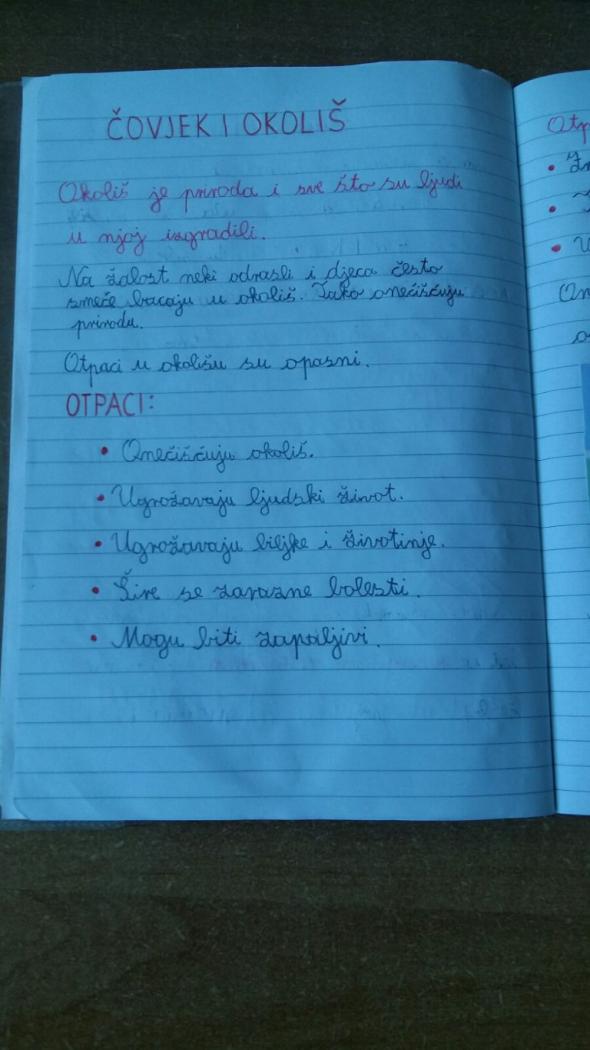 ČOVJEK I OKOLIŠ
Okoliš je priroda i sve što su ljudi
u njoj izgradili.
Na žalost neki odrasli i djeca često
smeće bacaju u okoliš. Tako onečišćuju
prirodu.
Otpaci u okolišu su opasni.
OTPACI:
• Onečišćuju okoliš.
• Ugrožavaju ljudski život.
• Ugrožavaju biljke i životinje.
• Šire se zarazne bolesti.
• Mogu biti zapaljivi.
Otp